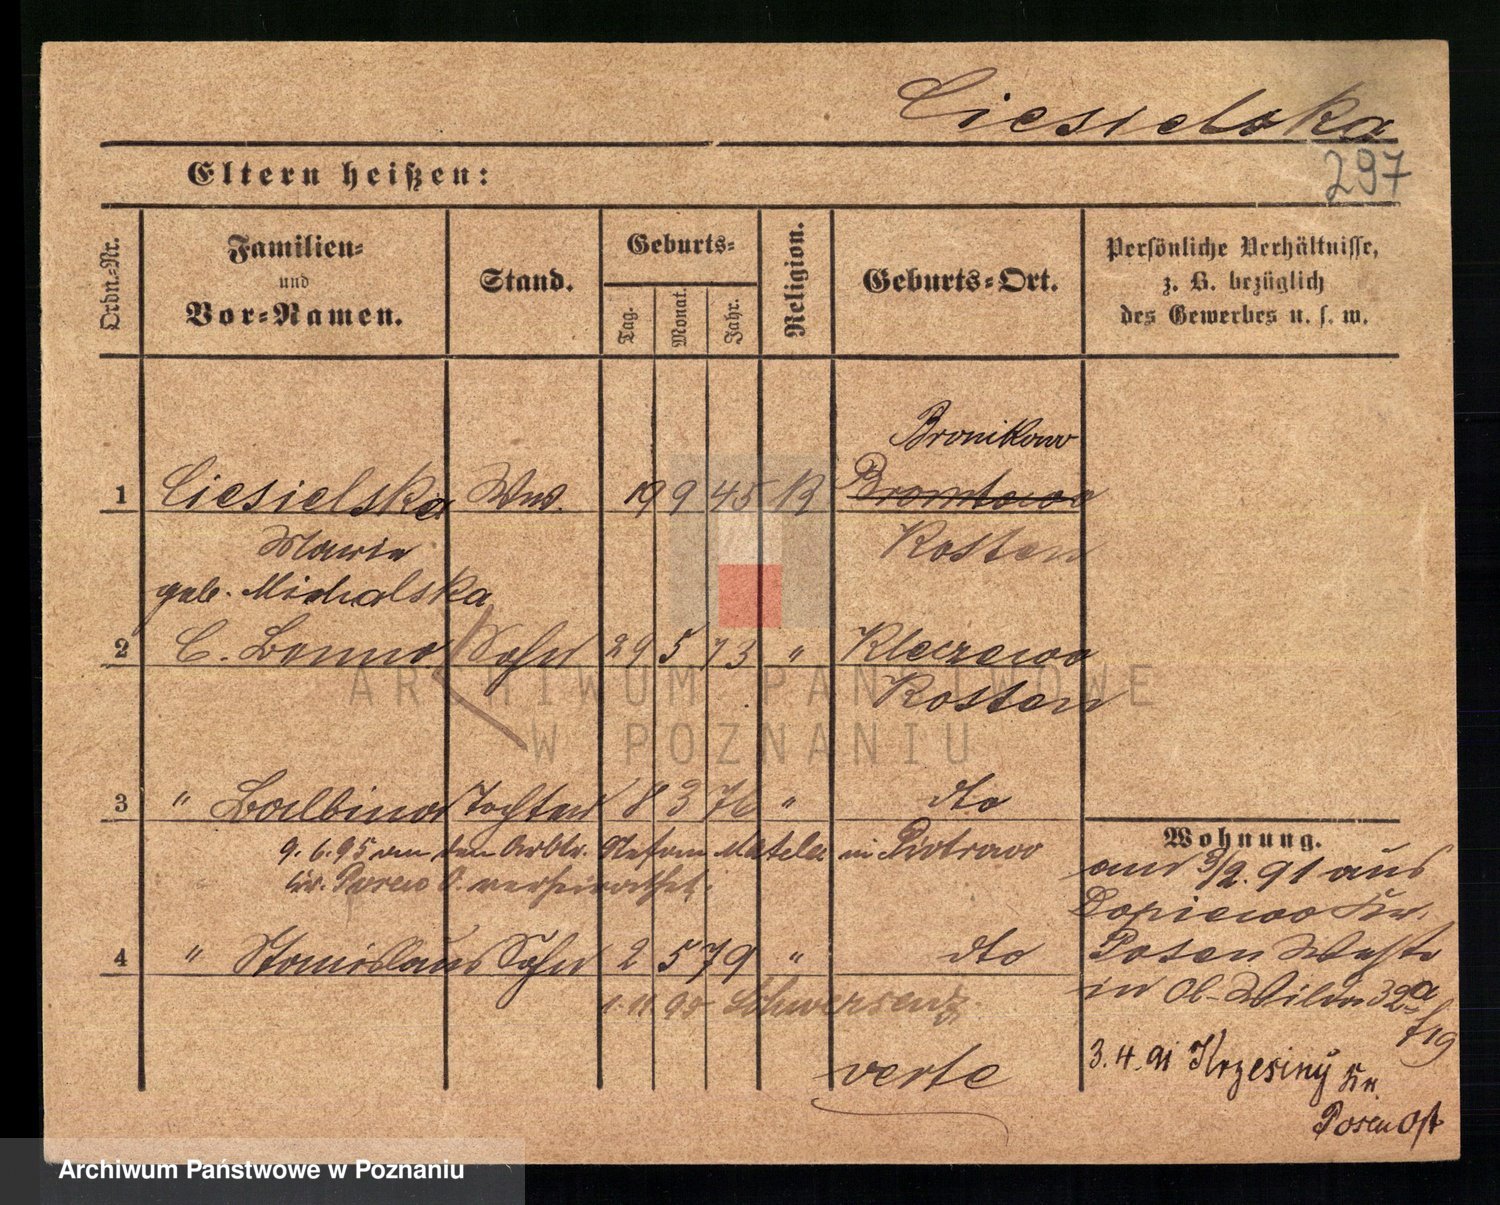 Ciesielska
297
Eltern heißen:
Ordn.-Nr.
Familien-
und
Vor-Namen.
Stand.
Geburts-
Tag.
Monat.
Jahr.
Religion.
Geburts-Ort.
Persönliche Verhältnisse,
z. B. bezüglich
des Gewerbes u. s. w.
Bronikowo
1 Ciesielska Ww. 19 9 45 K
Marie Kosten
geb. Michalska
2 C. Benno Sohn 29 5 73 " Kleczewo
Kosten
ARCHIWUM PAŃSTWOWE
W POZNANIU
3 " Balbina Tochter 8 3 76 " dto
9.6.95 an den Arbtr. Stefan Matela in Piotrowo
Kr. Posen O. verheirathet.
4 " Stanislaus Sohn 2 5 79 " dto
1.11.95 Schwersenz
verte
Wohnung.
am 3/2.91 aus
Dopiewo Kr.
Posen West
in Ob-Wilda 32a
f 19
3.4.91 Krzesiny Kr.
Posen Ost
Archiwum Państwowe w Poznaniu